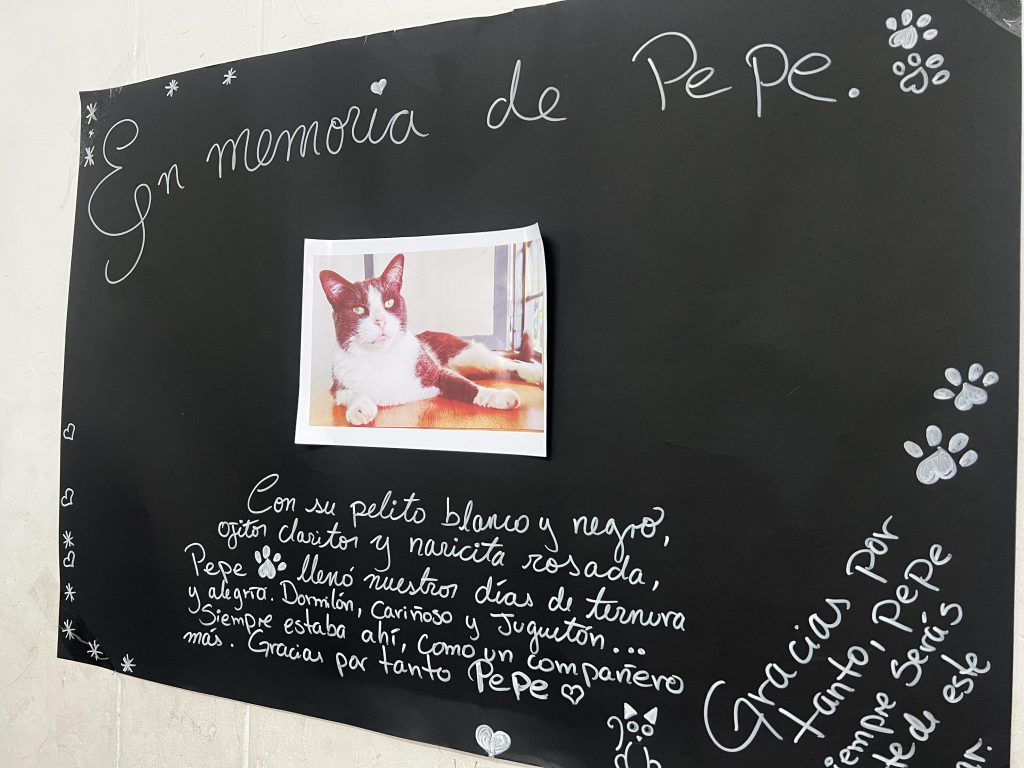 En memoria de Pepe.
Con su pelito blanco y negro,
ojitos claritos y naricita rosada,
Pepe llenó nuestros días de ternura
y alegría. Dormilón, cariñoso y juguetón...
Siempre estaba ahí, como un compañero
más. Gracias por tanto Pepe
Gracias por
tanto, Pepe
siempre serás
te de este